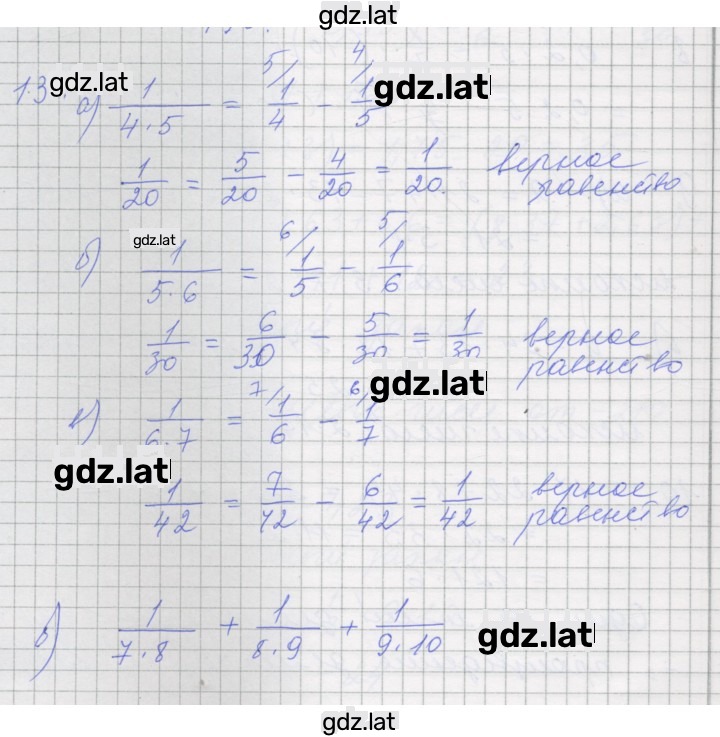 gdz.lat
gdz.lat
1.3 а) 1/(4·5) = 5/ 1/4 - 4/ 1/5 gdz.lat
1/20 = 5/20 - 4/20 = 1/20. верное
равенство
gdz.lat
б) 1/(5·6) = 6/ 1/5 - 5/ 1/6
1/30 = 6/30 - 5/30 = 1/30 верное
равенство
gdz.lat
1/(6·7) = 7/ 1/6 - 6/ 1/7
gdz.lat
1/42 = 7/42 - 6/42 = 1/42 верное
равенство
в) 1/(7·8) + 1/(8·9) + 1/(9·10) gdz.lat
gdz.lat